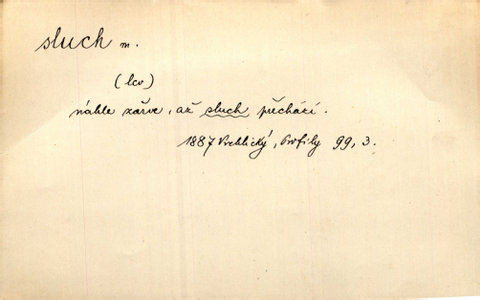 sluch m.
(lcv)
náhle zařve, až sluch přechází.
1887 Vrchlický, Profily 99, 3.